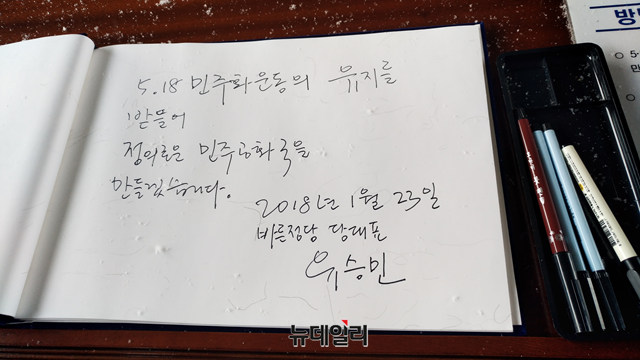 5.18 민주화운동의 유지를
받들어
정의로운 민주공화국을
만들겠습니다.
2018년 1월 23일
바른정당 당대표
유승민
뉴데일리
방
5
민